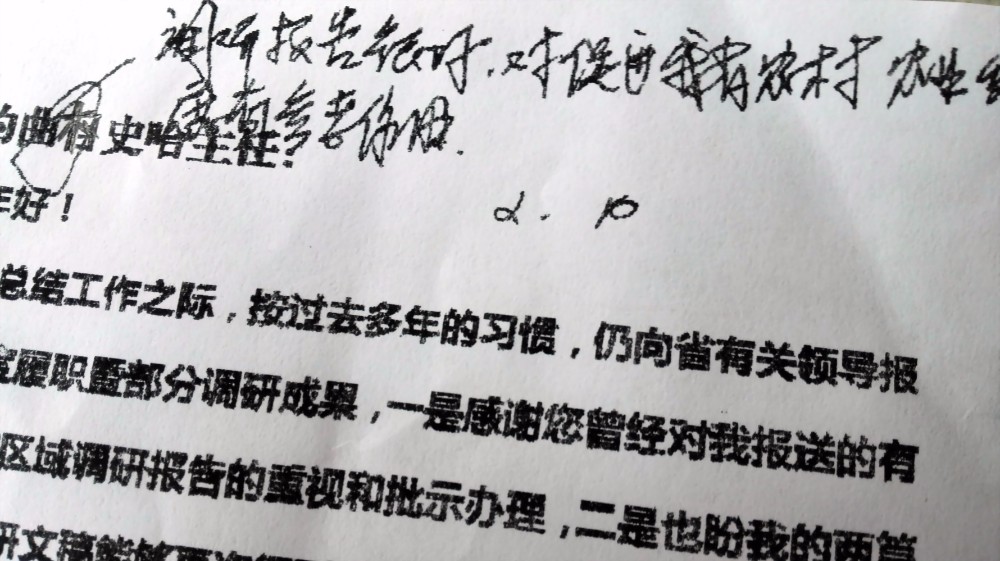 调研报告很好，对促进我省农村农业
具有参考作用.
2. 10
的曲木史哈主任：
年好！
总结工作之际，按过去多年的习惯，仍向省有关领导报
度履职暨部分调研成果，一是感谢您曾经对我报送的有
区域调研报告的重视和批示办理，二是也盼我的两篇
研文稿能够再次